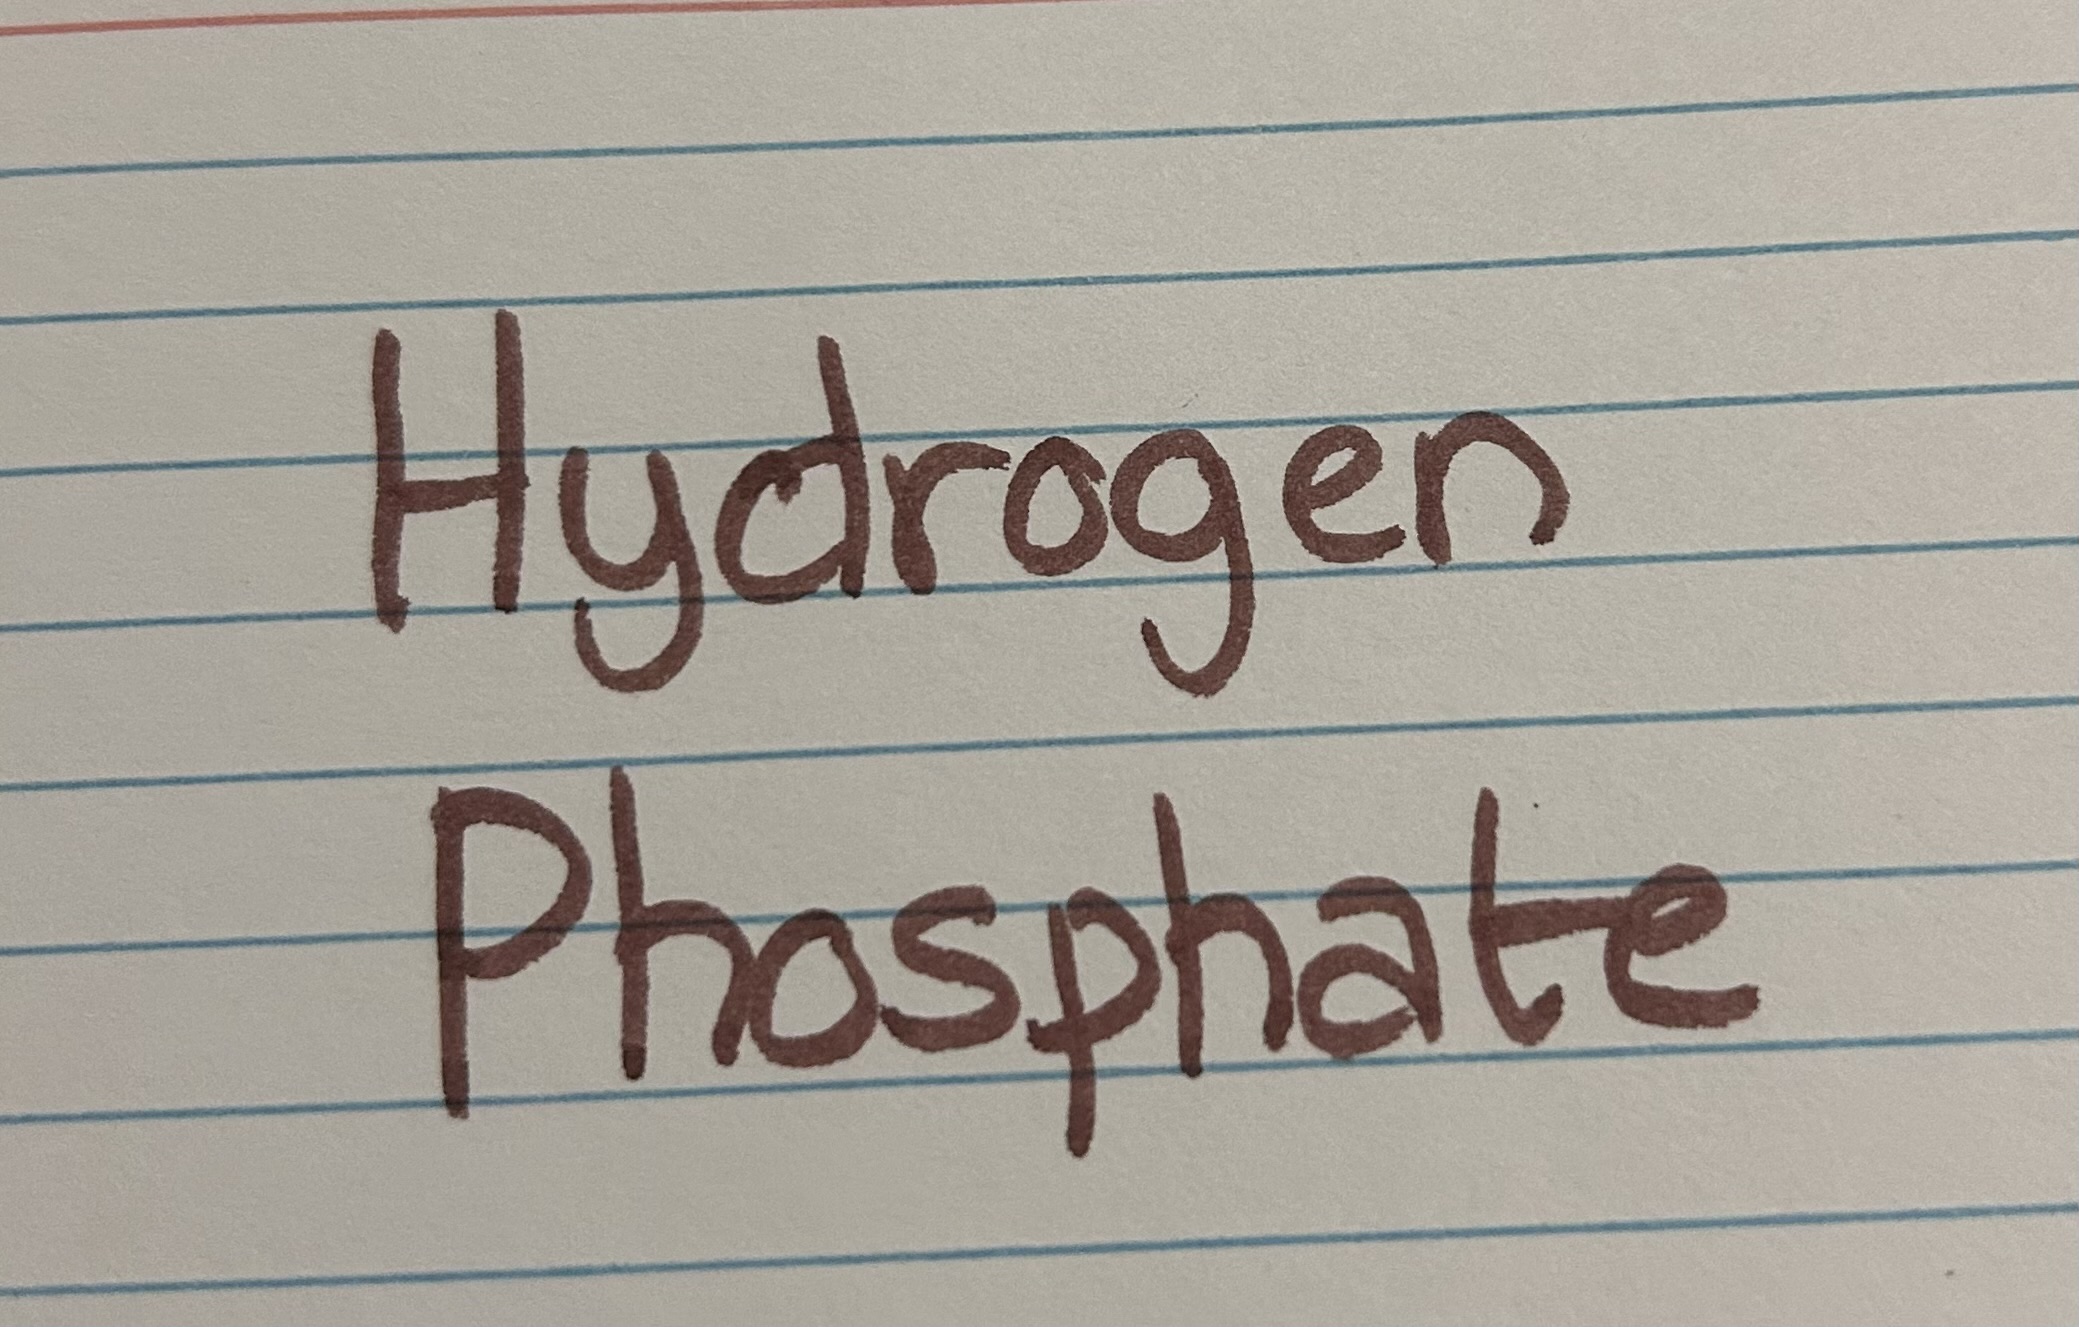 Hydrogen
Phosphate